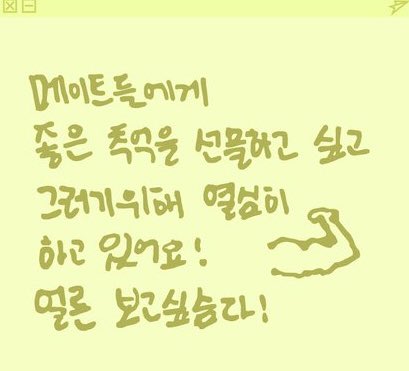 메이트들에게
좋은 추억을 선물하고 싶고
그러기위해 열심히
하고 있어요!
얼른 보고싶습다!